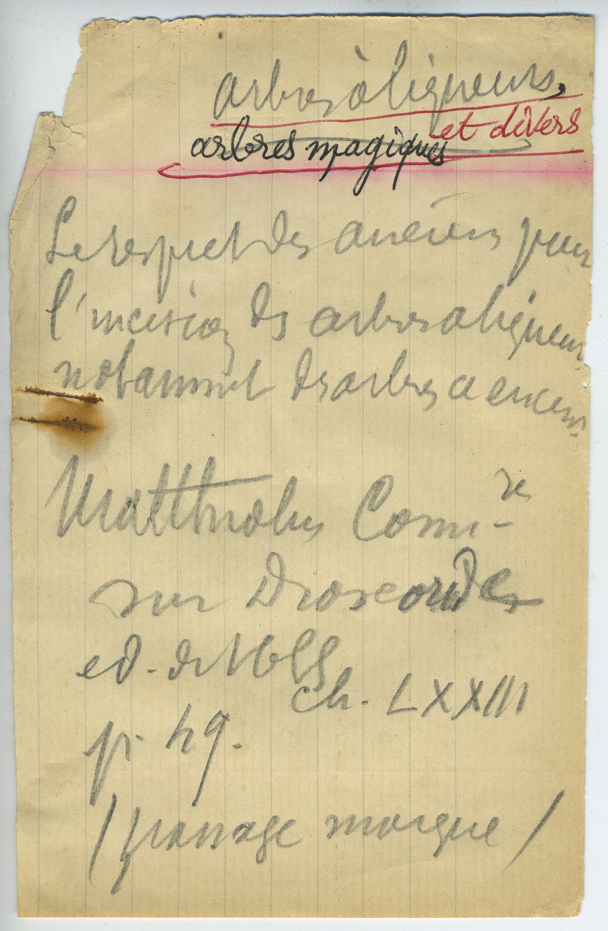 arbres à liqueurs,
et divers
arbres magiques
Le respect des anciens pour
l'incision des arbres a liqueur,
notamment des arbres a encens.
Matthiolus Comre
sur Dioscorides
ed. de
ch. LXXIII
p. 49.
(passage marque)